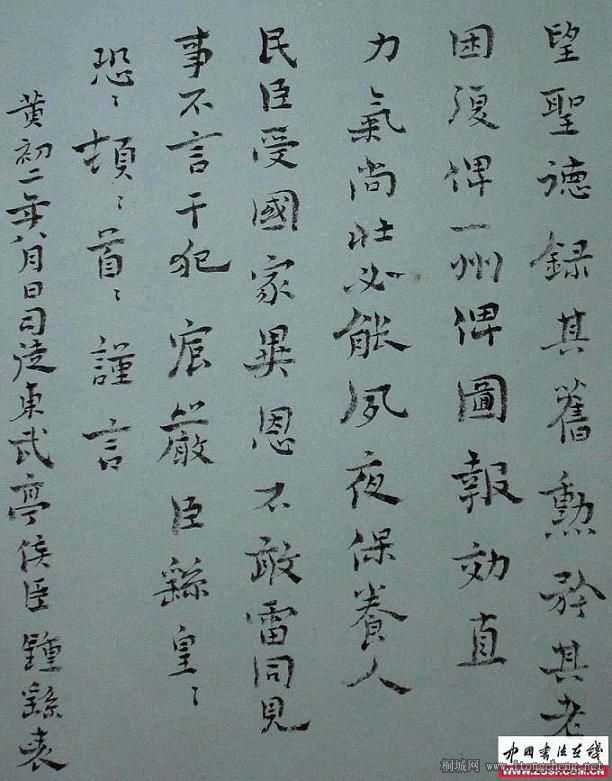 望聖德錄其舊勳矜其老
困復俾一州俾圖報效直
力氣尚壯必能夙夜保養人
民臣受國家異恩不敢雷同見
事不言干犯宸嚴臣繇皇〻
恐〻頓〻首〻謹言
黃初二年八月日司徒東武亭侯臣鍾繇表
中国書法在线
桐城网